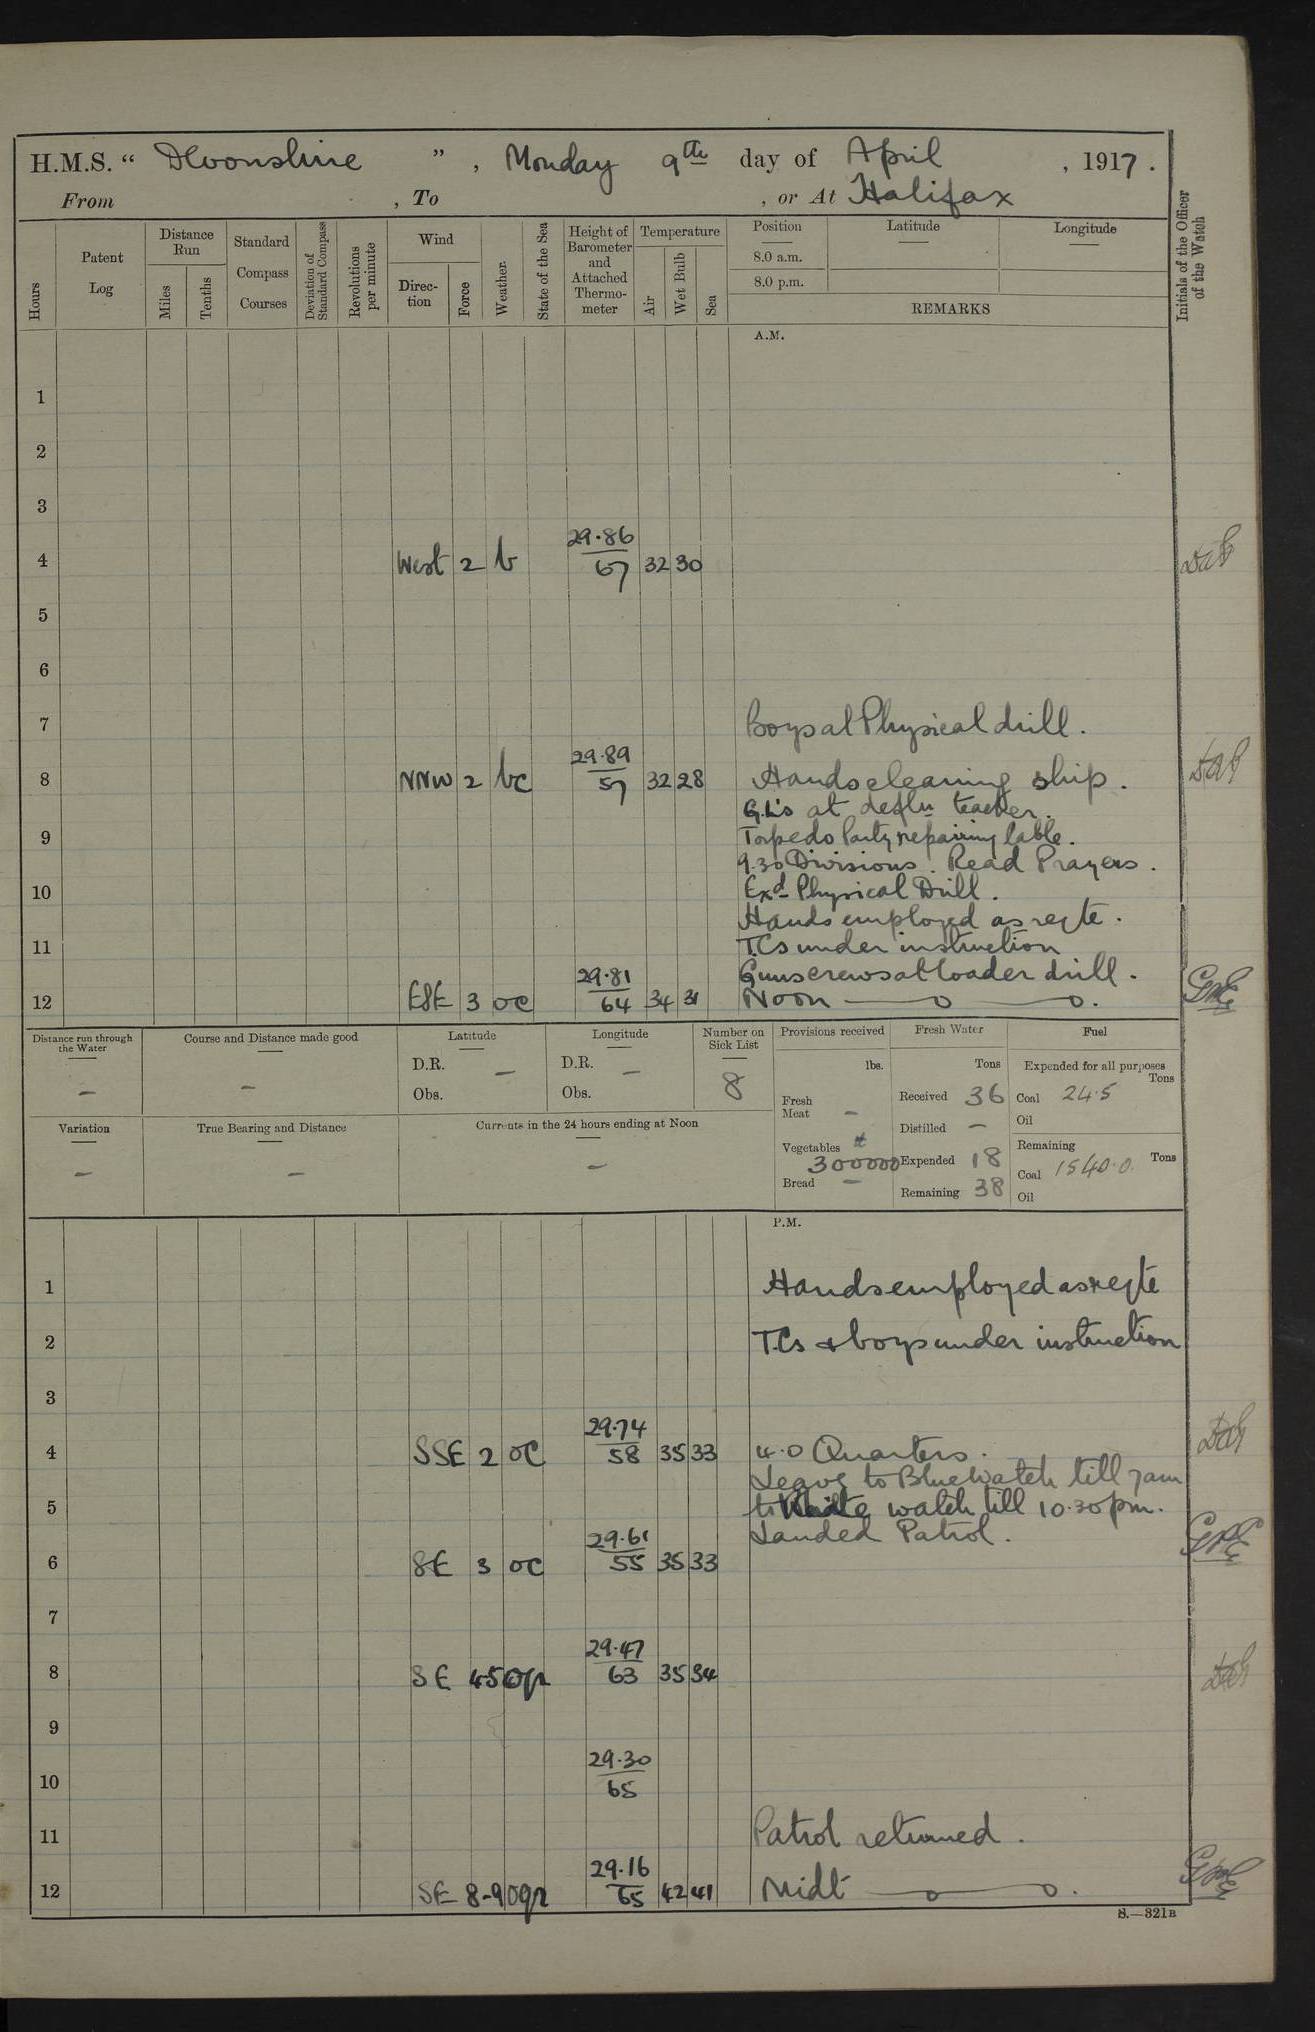 H.M.S. “ Devonshire ” , Monday 9th day of April , 1917.
From , To , or At Halifax
Hours
Patent Log
Distance Run
Miles
Tenths
Standard Compass Courses
Deviation of Standard Compass
Revolutions per minute
Wind
Direc-tion
Force
Weather.
State of the Sea
Height of Barometer and Attached Thermo-meter
Temperature
Air
Wet Bulb
Sea
Position
Latitude
Longitude
8.0 a.m.
8.0 p.m.
REMARKS
Initials of the Officer of the Watch
A.M.
1
2
3
4 West 2 b 29.86 67 32 30
5
6
7 Boys at Physical drill.
8 NNW 2 bc 29.89 57 32 28 Hands cleaning ship.
G.L's at defln teacher.
9 Torpedo Party repairing cable.
9.30 Divisions. Read Prayers.
10 Exd Physical Drill.
Hands employed as reqte.
11 T.Cs under instruction
Guns crews at loader drill.
12 ESE 3 oc 29.81 64 34 31 Noon
Distance run through the Water
—
Course and Distance made good
—
Latitude
D.R. —
Obs.
Longitude
D.R. —
Obs.
Number on Sick List
8
Provisions received
lbs.
Fresh Meat —
Vegetables
300000
Bread —
Fresh Water
Tons
Received 36
Distilled —
Expended 18
Remaining 38
Fuel
Expended for all purposes
Tons
Coal 24.5
Oil
Remaining
Tons
Coal 1540.0
Oil
Variation
—
True Bearing and Distance
—
Currents in the 24 hours ending at Noon
—
P.M.
1 Hands employed as reqte
2 T.Cs & boys under instruction
3
4 SSE 2 oc 29.74 58 35 33 4.0 Quarters.
Leave to Blue Watch till 7am
5 to White watch till 10.30pm.
Landed Patrol.
6 SE 3 oc 29.61 55 35 33
7
8 SE 45 oqr 29.47 63 35 34
9
10 29.30 65
11 Patrol returned.
12 SE 8-9 oqr 29.16 65 42 41 Midt
S.—321B